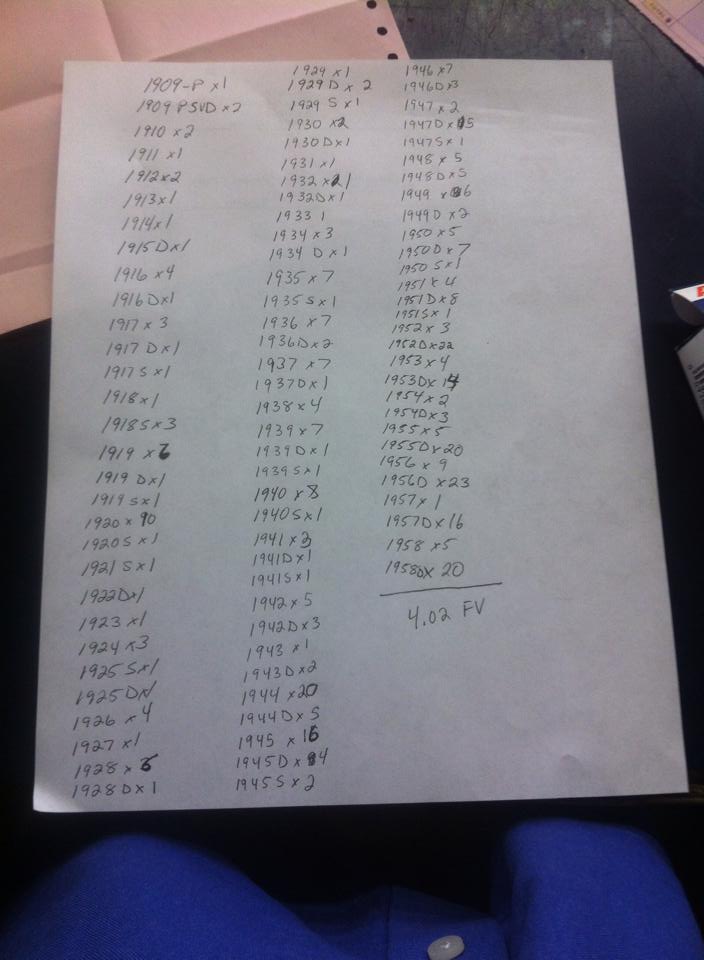 1909-P x1
1909 PSVD x2
1910 x2
1911 x1
1912 x2
1913 x1
1914 x1
1915 D x1
1916 x4
1916 D x1
1917 x 3
1917 D x1
1917 S x1
1918 x1
1918 S x3
1919 x
1919 D x1
1919 S x1
1920 x 10
1920 S x1
1921 S x1
1922 D x1
1923 x1
1924 x3
1925 S x1
1925 D x1
1926 x 4
1927 x1
1928 x
1928 D x1
1929 x1
1929 D x 2
1929 S x1
1930 x2
1930 D x1
1931 x1
1932 x1
1932 D x1
1933 1
1934 x3
1934 D x1
1935 x7
1935 S x1
1936 x7
1936 D x2
1937 x7
1937 D x1
1938 x4
1939 x7
1939 D x1
1939 S x1
1940 x8
1940 S x1
1941 x3
1941 D x1
1941 S x1
1942 x5
1942 D x3
1943 x1
1943 D x2
1944 x20
1944 D x5
1945 x 16
1945 D x 4
1945 S x2
1946 x7
1946 D x3
1947 x2
1947 D x 5
1947 S x1
1948 x 5
1948 D x5
1949 x 6
1949 D x2
1950 x5
1950 D x7
1950 S x1
1951 x 4
1951 D x8
1951 S x1
1952 x 3
1952 D x22
1953 x4
1953 D x 14
1954 x2
1954 D x3
1955 x5
1955 D x20
1956 x 9
1956 D x23
1957 x1
1957 D x16
1958 x5
1958 D x 20
4.02 FV